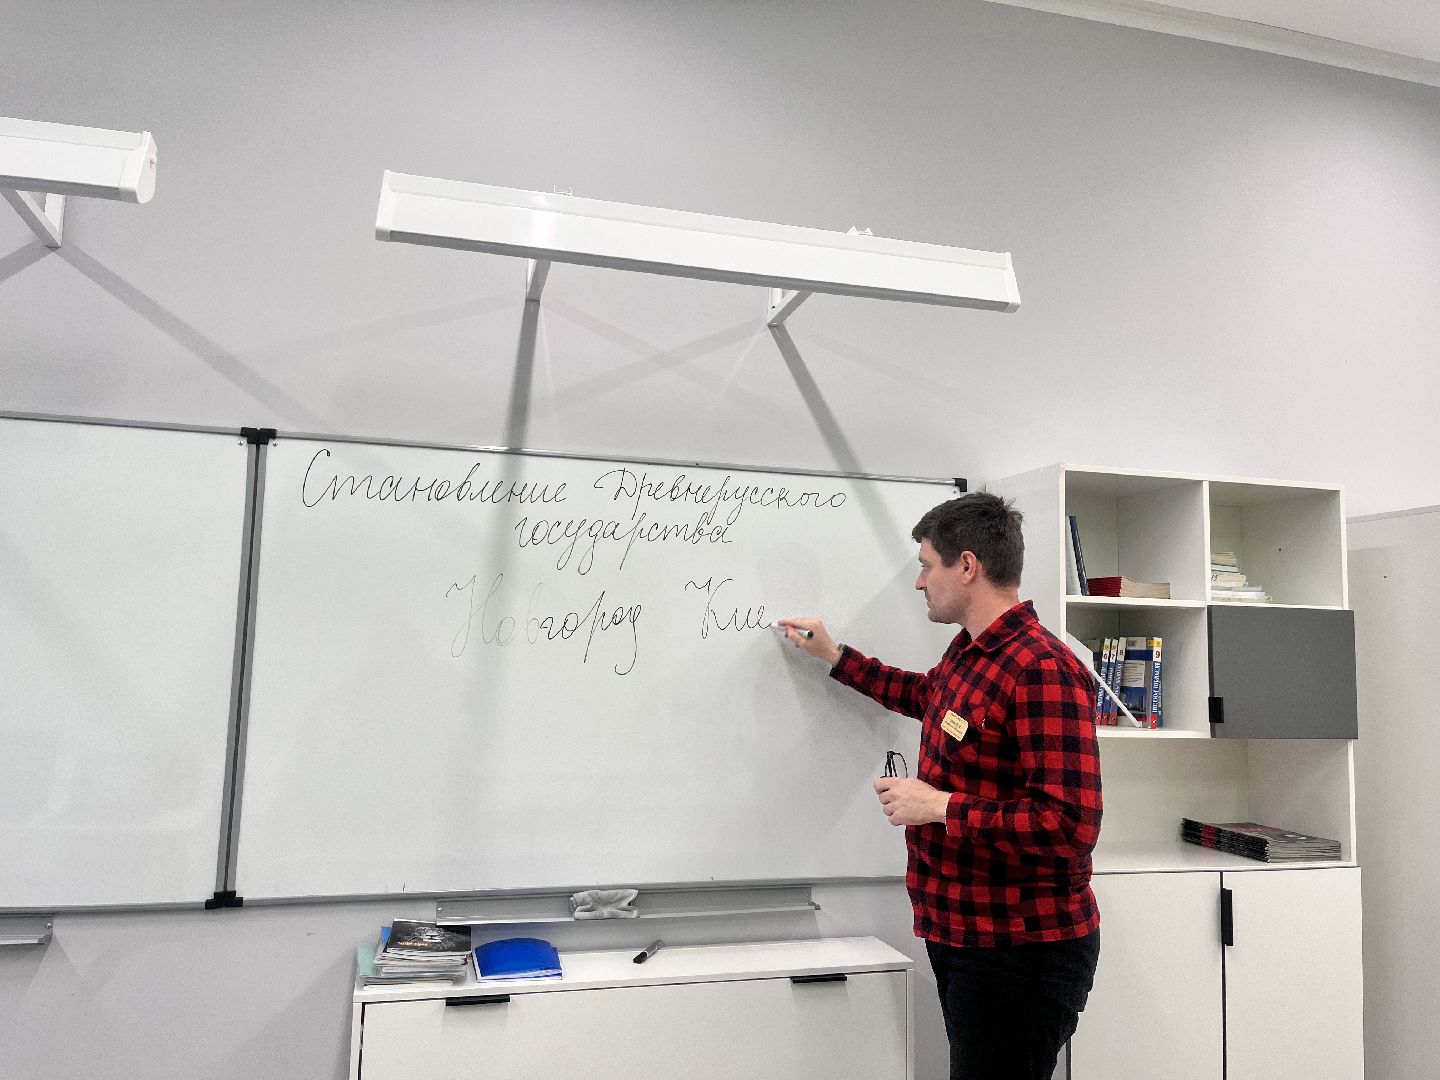 Становление Древнерусского
государства
Новгород Кие